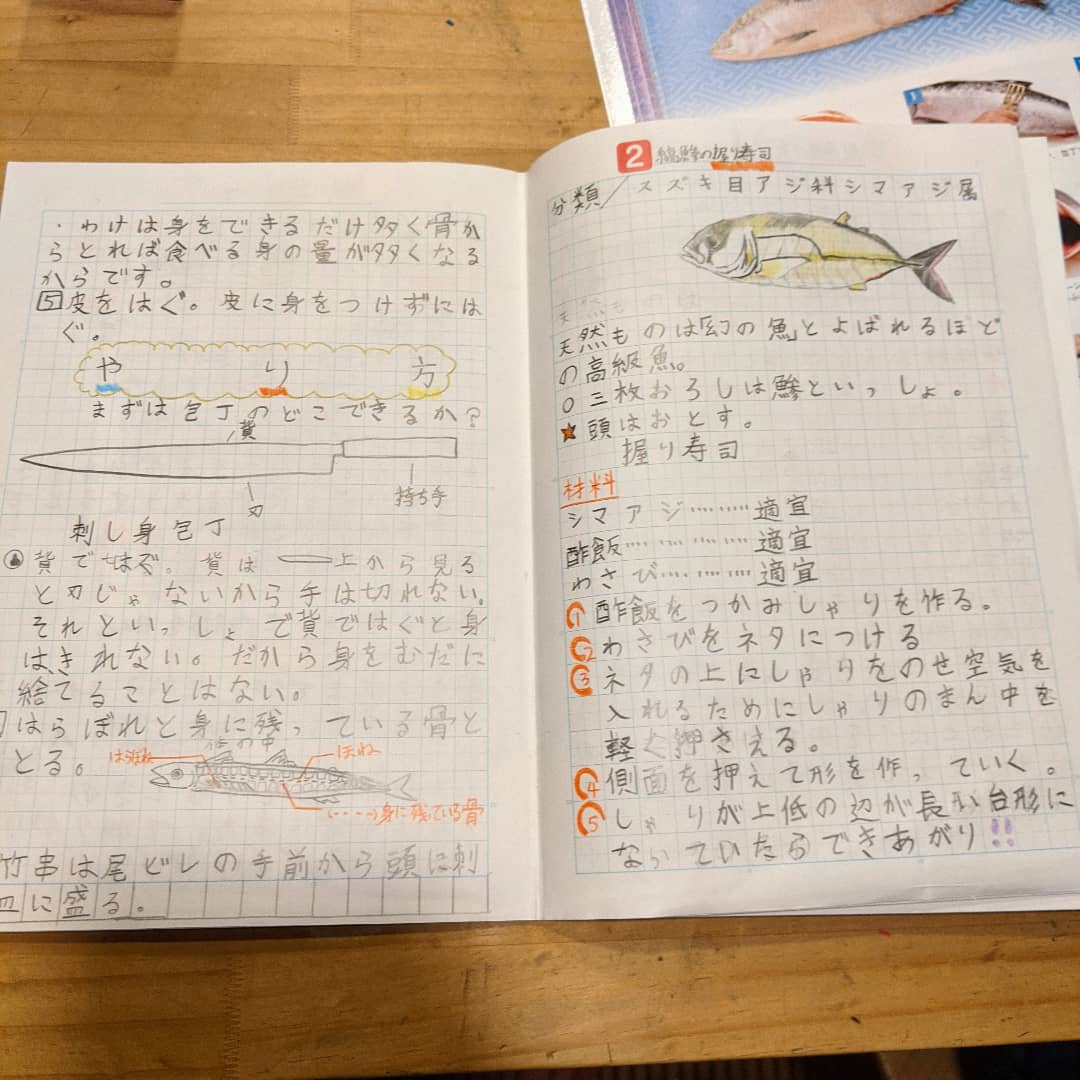 ・わけは身をできるだけ多く骨か
らとれば食べる身の量が多くなる
からです。
5 皮をはぐ。皮に身をつけずには
ぐ。
やり方
まずは包丁のどこでできるか?
刃
持ち手
刺し身包丁
ではぐ。 は 上から見る
と刃じゃないから手は切れない。
それといっしょで ではぐと身
はきれない。だから身をむだに
捨てることはない。
はらぼねと身に残っている骨と
とる。
体の中
ほね
身に残っている骨
竹串は尾ビレの手前から頭に刺
皿に盛る。
2 縞鯵の握り寿司
分類/スズキ目アジ科シマアジ属
天然もの
天然ものは「幻の魚」とよばれるほど
の高級魚。
○三枚おろしは鯵といっしょ。
★頭はおとす。
握り寿司
材料
シマアジ………適宜
酢飯…………適宜
わさび…………適宜
1 酢飯をつかみしゃりを作る。
2 わさびをネタにつける
3 ネタの上にしゃりをのせ空気を
入れるためにしゃりのまん中を
軽く押さえる。
4 側面を押えて形を作っていく。
5 しゃりが上低の辺が長い台形に
なっていたらできあがり!!